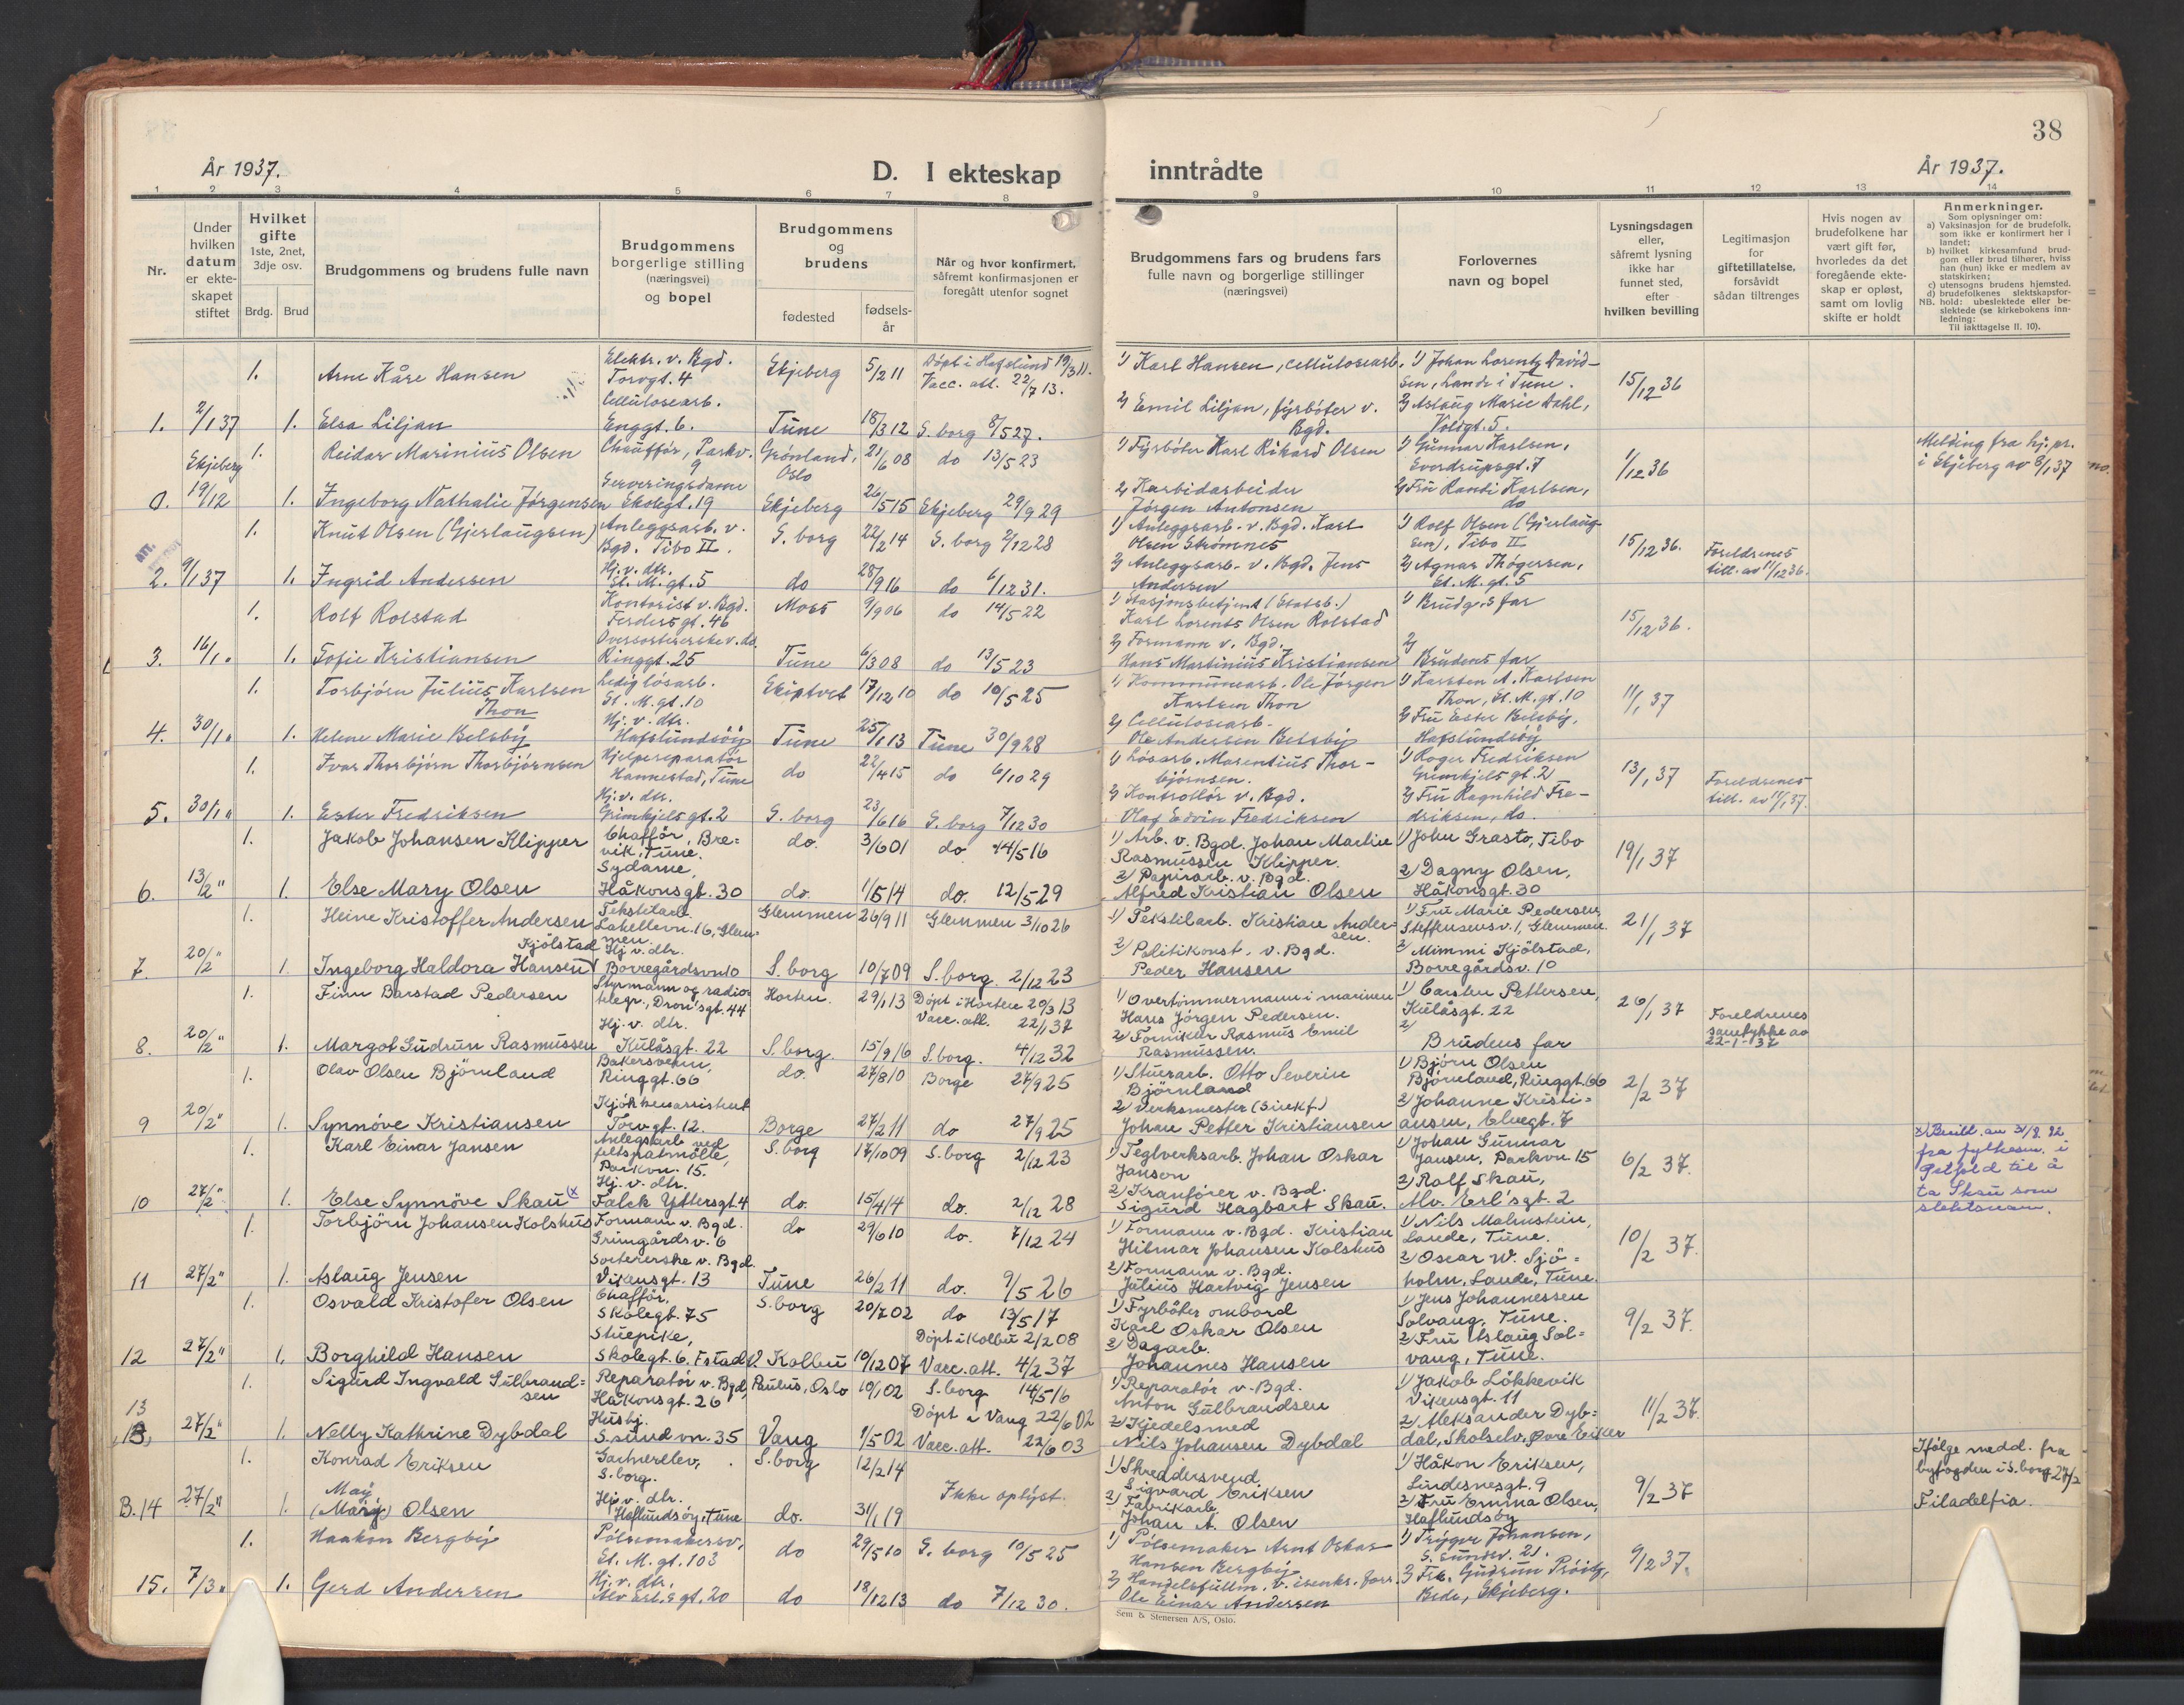 38
År 1937.
D. I ekteskap inntrådte
År 1937.
1 2 3 4 5 6 7 8 9 10 11 12 13 14
Nr.
Under hvilken datum er ekte-skapet stiftet
Hvilket gifte 1ste, 2net, 3dje osv.
Brdg. Brud
Brudgommens og brudens fulle navn
Brudgommens borgerlige stilling (næringsvei) og bopel
Brudgommens og brudens
fødested
fødsels-år
Når og hvor konfirmert, såfremt konfirmasjonen er foregått utenfor sognet
Brudgommens fars og brudens fars fulle navn og borgerlige stillinger (næringsvei)
Forlovernes navn og bopel
Lysningsdagen eller, såfremt lysning ikke har funnet sted, efter hvilken bevilling
Legitimasjon for giftetillatelse, forsåvidt sådan tiltrenges
Hvis nogen av brudefolkene har vært gift før, hvorledes da det foregående ekte-skap er opløst, samt om lovlig skifte er holdt
Anmerkninger.
Som oplysninger om:
a) Vaksinasjon for de brudefolk, som ikke er konfirmert her i landet;
b) hvilket kirkesamfund brud-gom eller brud tilhører, hviss han (hun) ikke er medlem av statskirken;
c) utensogns brudens hjemsted.
d) brudefolkenes slektskapsfor-hold: ubeslektede eller be-slektede (se kirkebokens inn-ledning:
NB.
Til iakttagelse II. 10).
1. Arne Kåre Hansen Elektr. v. Bgd. Torvgt. 4 Skjeberg 5/2 11 Døpt i Hafslund 19/3 11. Vacc. att. 22/7 13. 1) Karl Hansen, cellulosearb. 1) Johan Lorentz David-sen, Lande i Tune. 15/12 36
1. 2/1 37 1. Elsa Liljan Cellulosearb. Enggt. 6. Tune 18/3 12 S.borg 8/5 27. 2) Emil Liljan, fyrbøter v. Bgd. 2) Aslaug Marie Dahl, Voldgt. 5.
1. Reidar Marinius Olsen Chauffør, Parkv. 9 Grønland, Oslo 21/6 08 do 13/5 23 1) Fyrbøter Karl Rikard Olsen 1) Gunnar Karlsen, Sverdrupsgt. 7 1/12 36 Melding fra hj.pr. i Skjeberg av 8/1 37
0. Skjeberg 19/12 1. Ingeborg Nathalie Jørgensen Serveringsdame Skolegt. 19 Skjeberg 26/5 15 Skjeberg 29/9 29 2) Karbidarbeider Jørgen Antonsen 2) Fru Randi Karlsen, do
ATT.
1. Knut Olsen (Gjerlaugsen) Anleggsarb. v. Bgd. Tibo II. S.borg 22/2 14 S.borg 2/12 28 1) Anleggsarb. v. Bgd. Karl Olsen Strømnes 1) Rolf Olsen (Gjerlaug-sen), Tibo II 15/12 36. Foreldrenes till. av 11/12 36.
2. 9/1 37 1. Ingrid Andersen Hj. v. dtr. St. M. gt. 5 do 28/9 16 do 6/12 31. 2) Anleggsarb. v. Bgd. Jens Andersen 2) Agnar Thøgersen, St. M. gt. 5
1. Rolf Rolstad Kontorist v. Bgd. Ferdersgt. 46 Moss 9/9 06 do 14/5 22 1) Stasjonsbetjent (Statsb.) Karl Lorents Olsen Rolstad 1) Brudg.s far 15/12 36.
3. 16/1 " 1. Sofie Kristiansen Oversortererske v. do. Ringgt. 25 Tune 6/3 08 do 13/5 23 2) Formann v. Bgd. Hans Martinius Kristiansen 2) Brudens far
1. Torbjørn Julius Karlsen Thon Ledig løsarb. St. M. gt. 10 Skiptvet 17/12 10 do 10/5 25 1) Kommunearb. Ole Jørgen Karlsen Thon 1) Karsten A. Karlsen Thon, St. M. gt. 10 11/1 37
4. 30/1 " 1. Helene Marie Belsby Hj. v. dtr. Hafslundsøy Tune 25/1 13 Tune 30/9 28 2) Cellulosearb. Ole Andersen Belsby 2) Fru Ester Belsby, Hafslundsøy
1. Ivar Thorbjørn Thorbjørnsen Hjelpereparatør Hannestad, Tune do 22/4 15 do 6/10 29 1) Løsarb. Marentius Thor-bjørnsen. 1) Roger Fredriksen Grimkjelsgt. 2 13/1 37 Foreldrenes till. av 11/1 37.
5. 30/1 " 1. Ester Fredriksen Hj. v. dtr. Grimkjelsgt. 2 S.borg 23/6 16 S.borg 7/12 30 2) Kontrollør v. Bgd. Olaf Edvin Fredriksen 2) Fru Ragnhild Fre-driksen, do.
1. Jakob Johansen Klipper Chaffør, Bre-vik, Tune. do. 3/6 01 do 14/5 16 1) Arb. v. Bgd. Johan Martin Rasmussen Klipper. 1) John Grasto, Tibo 19/1 37
6. 13/2 " 1. Else Mary Olsen Sydame, Håkonsgt. 30 do. 1/5 14 do. 12/5 29 2) Papirarb. v. Bgd. Alfred Kristian Olsen 2) Dagny Olsen, Håkonsgt. 30
1. Heine Kristoffer Andersen Tekstilarb. Lakellevn. 16, Glem-men. Glemmen 26/9 11 Glemmen 3/10 26 1) Tekstilarb. Kristian Ander-sen. 1) Fru Marie Pedersen, Steffensensv. 1, Glemmen. 21/1 37
7. 20/2 " 1. Ingeborg Haldora Hansen Kjölstad Hj. v. dtr. Borregårdsvn 10 S.borg 10/7 09 S.borg. 2/12 23 2) Politikonst. v. Bgd. Peder Hansen 2) Mimmi Kjölstad, Borregårdsv. 10
1. Finn Barstad Pedersen Styrmann og radio-telegr., Dron'sgt. 44 Horten. 29/1 13 Döpt i Horten 20/3 13 Vacc. att. 22/1 37 1) Overtömmermann i marinen Hans Jörgen Pedersen. 1) Carsten Pettersen, Kulåsgt. 22 26/1 37 Foreldrenes samtykke av 22-1-37
8. 20/2 " 1. Margot Gudrun Rasmussen Hj. v. dtr. Kulåsgt. 22 S.borg. 15/9 16 S.borg. 4/12 32 2) Fornikler Rasmus Emil Rasmussen. 2) Brudens far
1. Olav Olsen Björnland Bakersvenn, Ringgt. 66 do. 27/8 10 Borge 27/9 25 1) Stuerarb. Otto Severin Björnland 1) Björn Olsen Björnland, Ringgt. 66 2/2 37
9 20/2 " 1. Synnöve Kristiansen Kjökkenassistent Torvgt. 12. Borge 27/2 11 do 27/9 25 2) Verksmester (Sinkf.) Johan Petter Kristiansen 2) Johanne Kristi-ansen, Elvegt. 7
1. Karl Einar Jansen Anlegsarb ved feltspatmölle, Parkvn. 15. S.borg 17/10 09 S.borg 2/12 23 1) Teglverksarb. Johan Oskar Janson 1) Johan Gunnar Jansen, Parkvn 15 6/2 37. x) Bevill. av 31/8. 82 fra fylkesm. i Østfold til å ta Skau som slektsnavn.
10 27/2 " 1. Else Synnöve Skau x) Hj. v. dtr. Falck Yttersgt. 4 do. 15/4 14 do. 2/12 28 2) Kranförer v. Bgd. Sigurd Hagbart Skau. 2) Rolf Skau, Alv. Erl'sgt. 2
1. Torbjörn Johansen Kolshus Formann v. Bgd. Grimgårdsv. 6 do 29/6 10 do. 7/12 24 1) Formann v. Bgd. Kristian Hilmar Johansen Kolshus 1) Nils Malmstein, Lande, Tune. 10/2 37.
11 27/2 " 1. Aslaug Jensen Sortererske v. Bgd. Vikensgt. 13 Tune 26/2 11 do. 9/5 26 2) Formann v. Bgd. Julius Hartvig Jensen 2) Oscar W. Sjö-holm, Lande, Tune.
1. Osvald Kristofer Olsen Chafför, Skolegt. 75 S.borg 20/7 02 do 13/5 17 1) Fyrböter ombord Karl Oskar Olsen 1) Jens Johannessen Solvang, Tune. 9/2 37.
12 27/2 " 1. Borghild Hansen Stuepike, Skolegt. 6. Fstad Kolbu 10/12 07 Döpt i Kolbu 2/2 08 Vacc. att. 4/2 37 2) Dagarb. Johannes Hansen 2) Fru Aslaug Sol-vang, Tune.
1. Sigurd Ingvald Gulbrand-sen Reparatör v. Bgd, Håkonsgt. 26 Paulus, Oslo 10/1 02 S.borg 14/5 16 1) Reparatör v. Bgd. Anton Gulbrandsen 1) Jakob Lökkevik Vikensgt. 11 11/2 37.
13 27/2 " 1. Nelly Kathrine Dybdal Husbj. S.sund vn. 35 Vang 1/5 02 Döpt i Vang 22/6 02 Vacc. att. 22/6 03 2) Kjedelsmed Nils Johansen Dybdal 2) Aleksander Dyb-dal, Skotselv, Øvre Eiker
1. Konrad Eriksen Gartnerelev, S.borg. S.borg 12/2 14 Ikke oplyst. 1) Skreddersvend Sigvard Eriksen 1) Håkon Eriksen, Lindesnesgt. 9 9/2 37 Ifölge medd. fra byfogden i S.borg 27/2
B.14 27/2 " 1. May (Mary) Olsen Hj. v. dtr. Haflundsöy, Tune do. 31/1 19 2) Fabrikarb. Johan A. Olsen 2) Fru Emma Olsen, Haflundsöy Filadelfia.
1. Haakon Bergby Pølsemakersv, St. M. gt. 103 do 29/5 10 S.borg 10/5 25 1) Pølsemaker Arnt Oskar Hansen Bergby 1) Trygve Johansen, S. sundsv. 21. 9/2 37.
15. 7/3 " 1. Gerd Andersen Hj. v. dtr, Alv Erl.s gt. 20 do 18/12 13 do 7/12 30. 2) Handelsfullm. v. isenkr. forr. Ole Einar Andersen 2) Frk. Gudrun Prøitz, Bede, Skjeberg.
Sem & Stenersen A/S, Oslo.